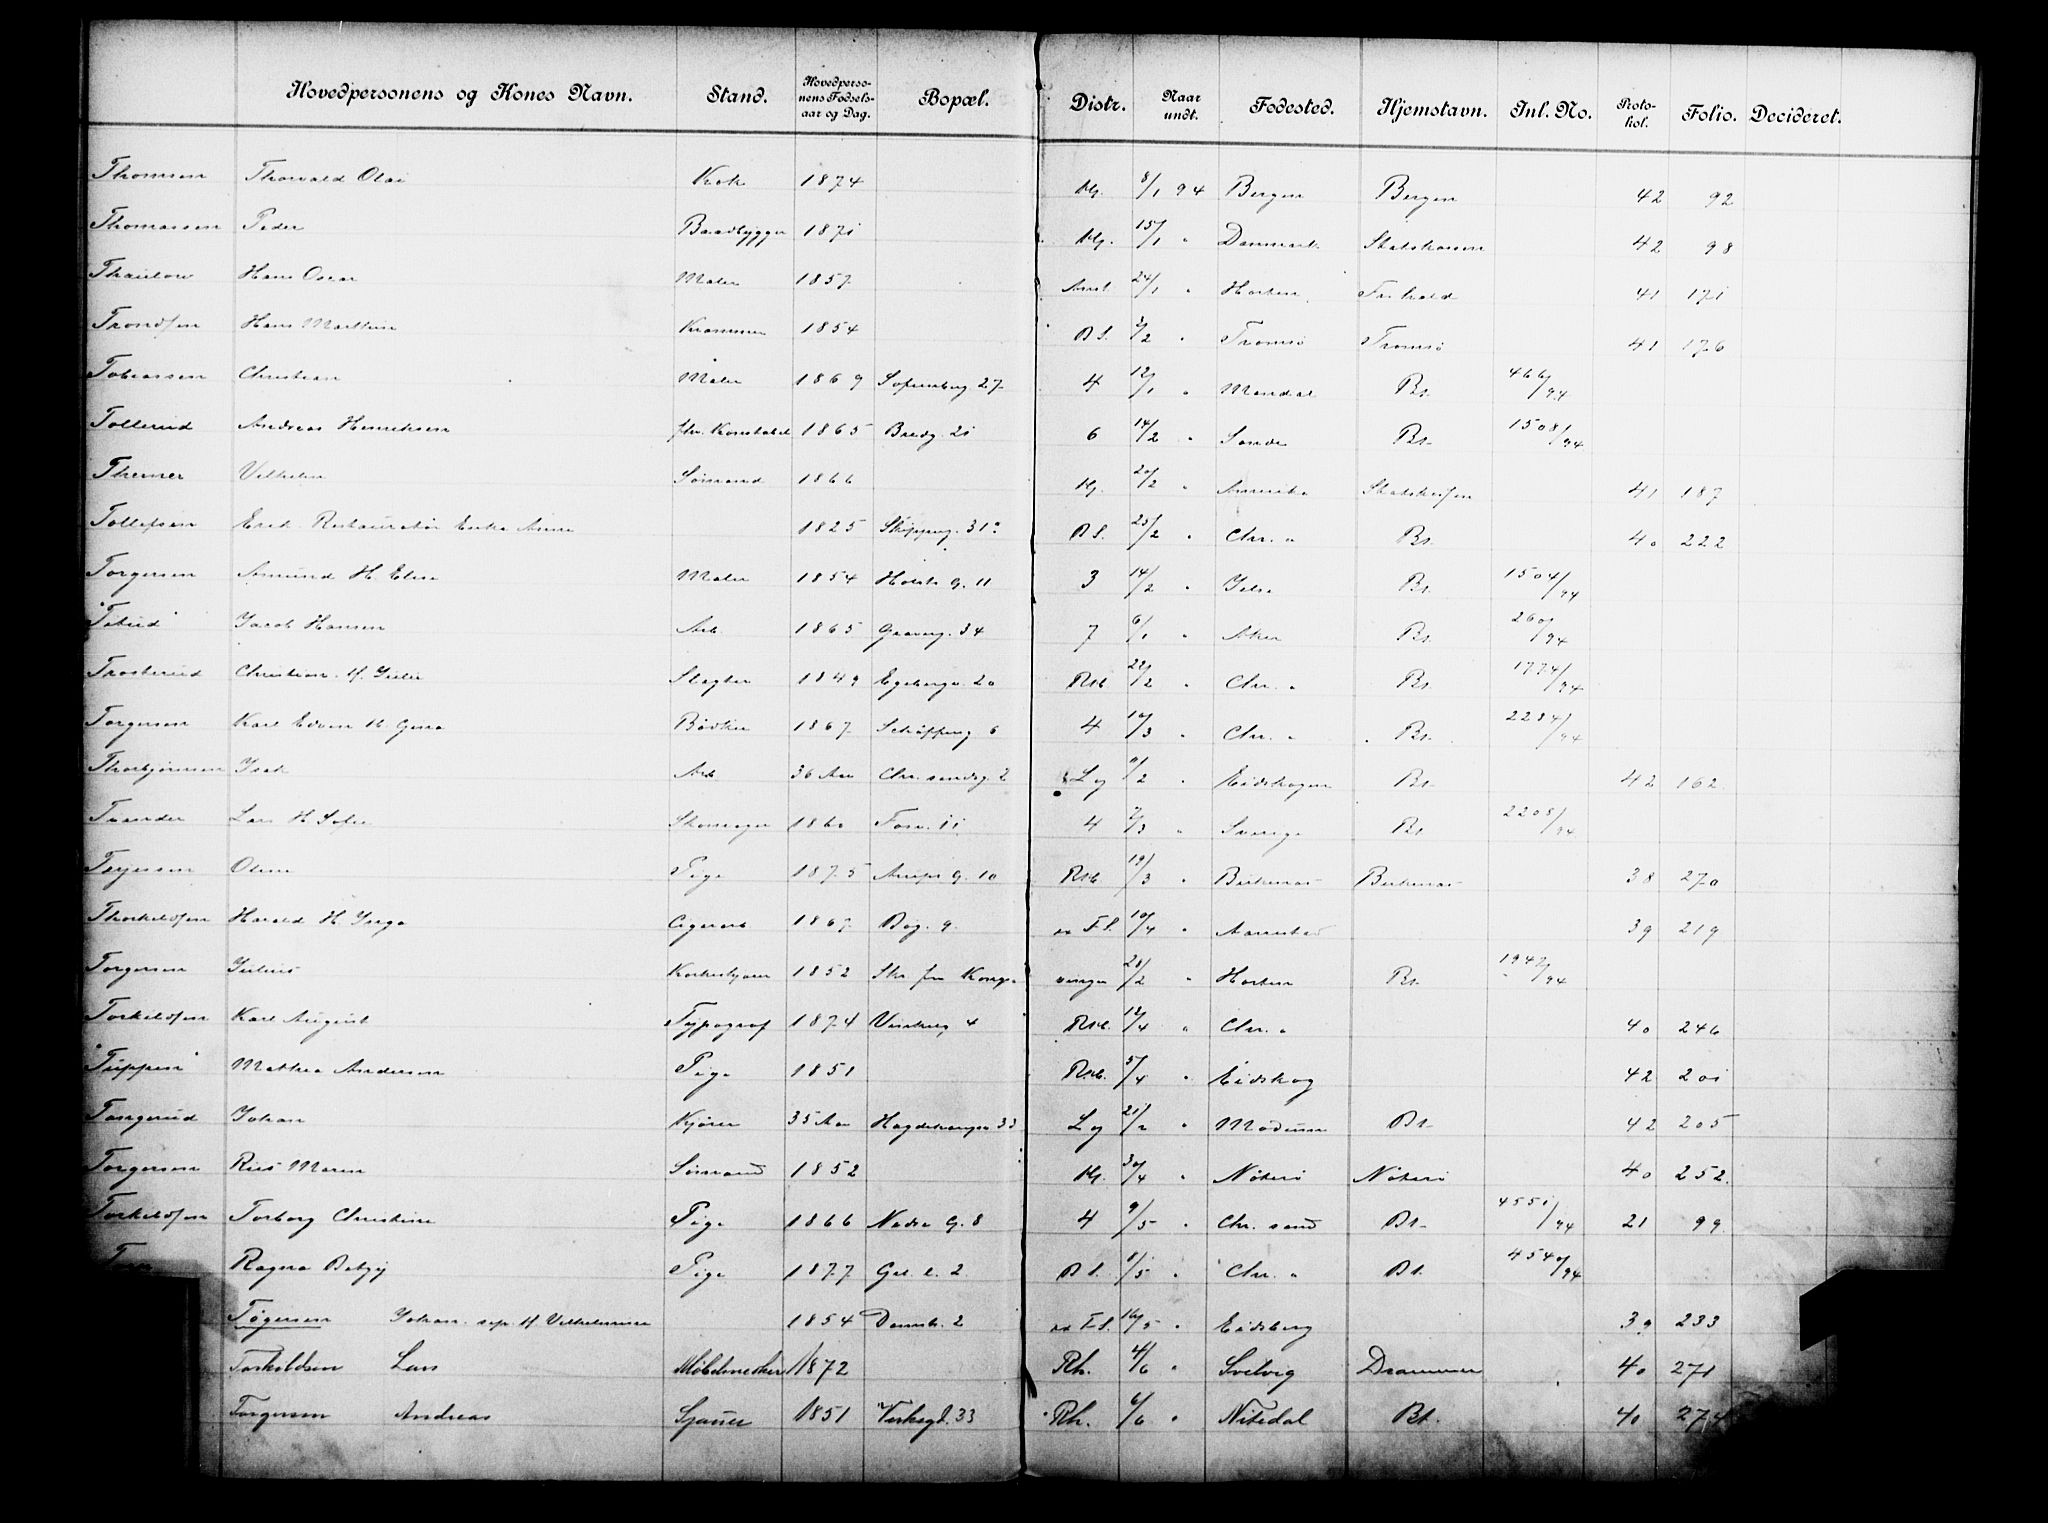 Hovedpersonens og Kones Navn. Stand. Hovedpersonens Fødselsaar og Dag. Bopæl. Distr. Naar undt. Fødested. Hjemstavn. Inl. No. Protokol. Folio. Decideret.
Thomsen Thorvald Olai Kok 1874 8/1 94 Bergen Bergen 42 92
Thomassen Peder Baadbygger 1871 15/1 " Danmark Statskassen 42 98
Thaulow Hans Oscar Maler 1857 24/1 " Horten Fr.hald 41 171
Trondsen Hans Marthin 1854 DS. 2/2 " Tromsø Tromsø 41 176
Tobiassen Christian Maler 1869 Sofienberg 27 4 12/1 " Mandal Bt. 466/94
Tollerud Andreas Henriksen fhv. Konstabel 1865 Bredg. 21 6 14/2 " Sande Bt. 1508/94
Vilhelm Sømand 1866 20/2 " Amerika 41 187
Tollefsen Restauratør Enke Anne 1825 Skipperg. 31 DS. 23/2 " Chr. " Bt. 40 222
Torgersen Amund H. Elise Maler 1854 Holsts G. 11 3 14/2 " Bt. 1504/94
Jacob Hansen Arb 1865 Graverg. 34 7 6/1 " Aker Bt. 260/94
Trosterud Christian Slagter 1849 Egebergs. 20 22/2 " Chr. " Bt. 1774/94
Torgersen Karl Edvin Bødker 1867 6 4 10/3 " Chr. " Bt. 2284/94
Thorbjørnsen Isak Arb 36 Aar Chr.sandsg. 2 Lg 9/2 " Eidskogen Bt. 42 162
Lars H. Sofie Skomager 1860 Fossv. 11 4 2/3 " Sverige Bt. 2208/94
Terjesen Oline Pige 1875 G. 10 19/3 " Birkenæs Birkenæs 38 270
Thorkildsen Harald H. Inga Cigararb 1867 Bog. 9. F.S. 10/4 " 39 219
Torgersen Julius Korkeskjærer 1852 Str. fra Kongsvinger 28/2 " Horten Bt. 1942/94
Torkildsen Karl August Typograf 1874 4 12/4 " Chr. " 40 246
"Tuppen" Mathea Andersen Pige 1851 5/4 " Eidskog 42 201
Tangerud Johan Kjører 35 Aar 33 Lg 21/2 " Modum Bt. 42 205
Torgersen Maren Sømand 1852 30/4 " Nøterø Nøterø 40 252.
Torkildsen Torborg Christine Pige 1866 Nedre G. 8 4 9/5 " Chr.sand Bt. 4551/94 21 99
Ragna Betzy Pige 1877 2 DS. 8/5 " Chr. " Bt. 4540/94
Tøgersen Johan. sep. H. Vilhelmine 1854 2 F.S. 16/5 " Eidsberg 39 233
Torkeldsen Lars Møbelsnedker 1872 Rh. 4/6 " Svelvig Drammen 40 271
Torgersen Andreas Sjauer 1851 Verksgd. 33 Rh. 6/6 " Nitedal Bt. 40 274